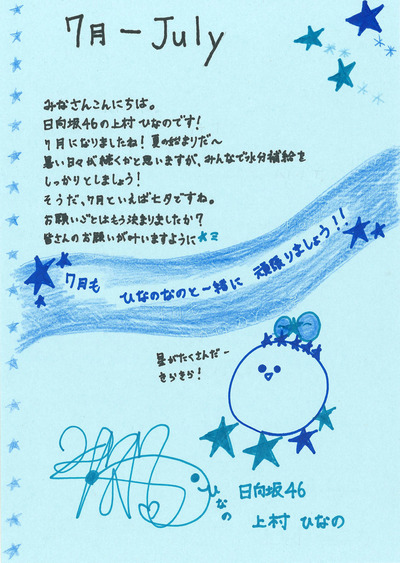 7月 ー July
みなさんこんにちは。
日向坂46の上村 ひなのです!
7月になりましたね!夏の始まりだ〜
暑い日々が続くかと思いますが、みんなで水分補給を
しっかりとしましょう!
そうだ、7月といえば七夕ですね。
お願いごとはもう決まりましたか?
皆さんのお願いが叶いますように
7月も ひなのなのと一緒に 頑張りましょう!!
星がたくさんだー
きらきら!
ひなの
日向坂46
上村 ひなの